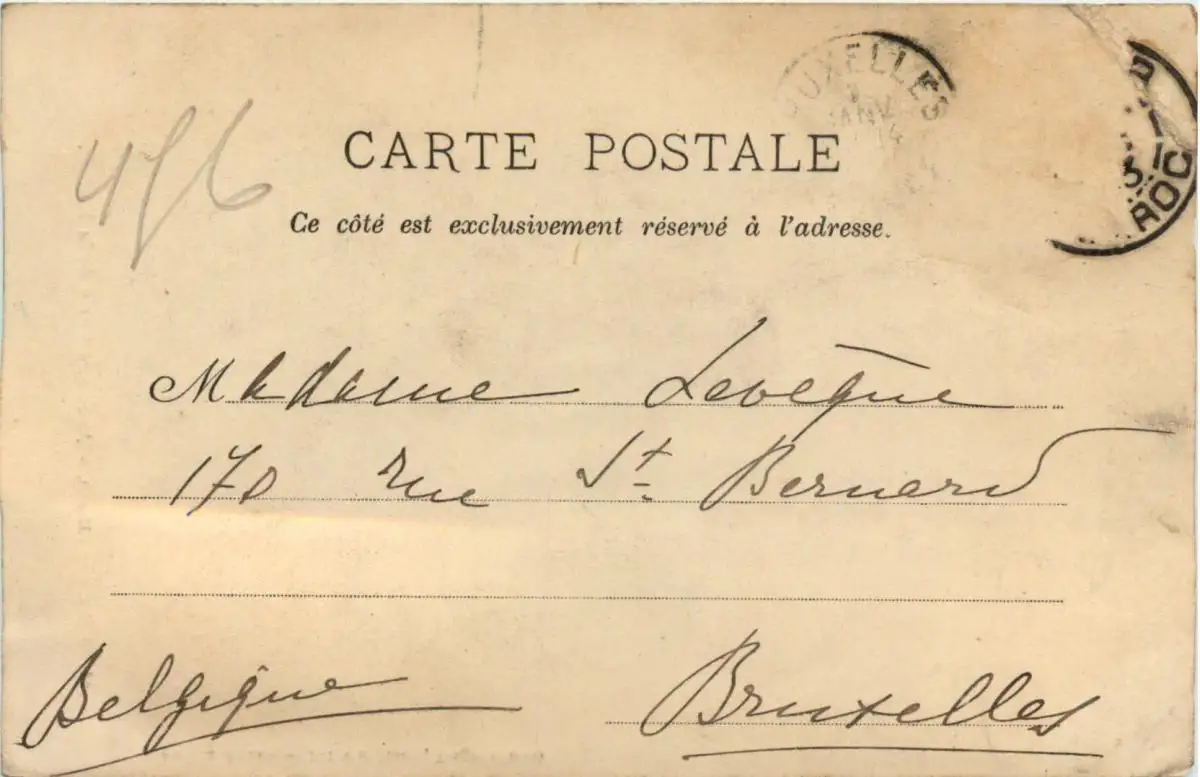 BRUXELLES
JANV
14
ROC
476
CARTE POSTALE
Ce côté est exclusivement réservé à l'adresse.
Madame Levêque
170 rue St Bernard
Belgique
Bruxelles